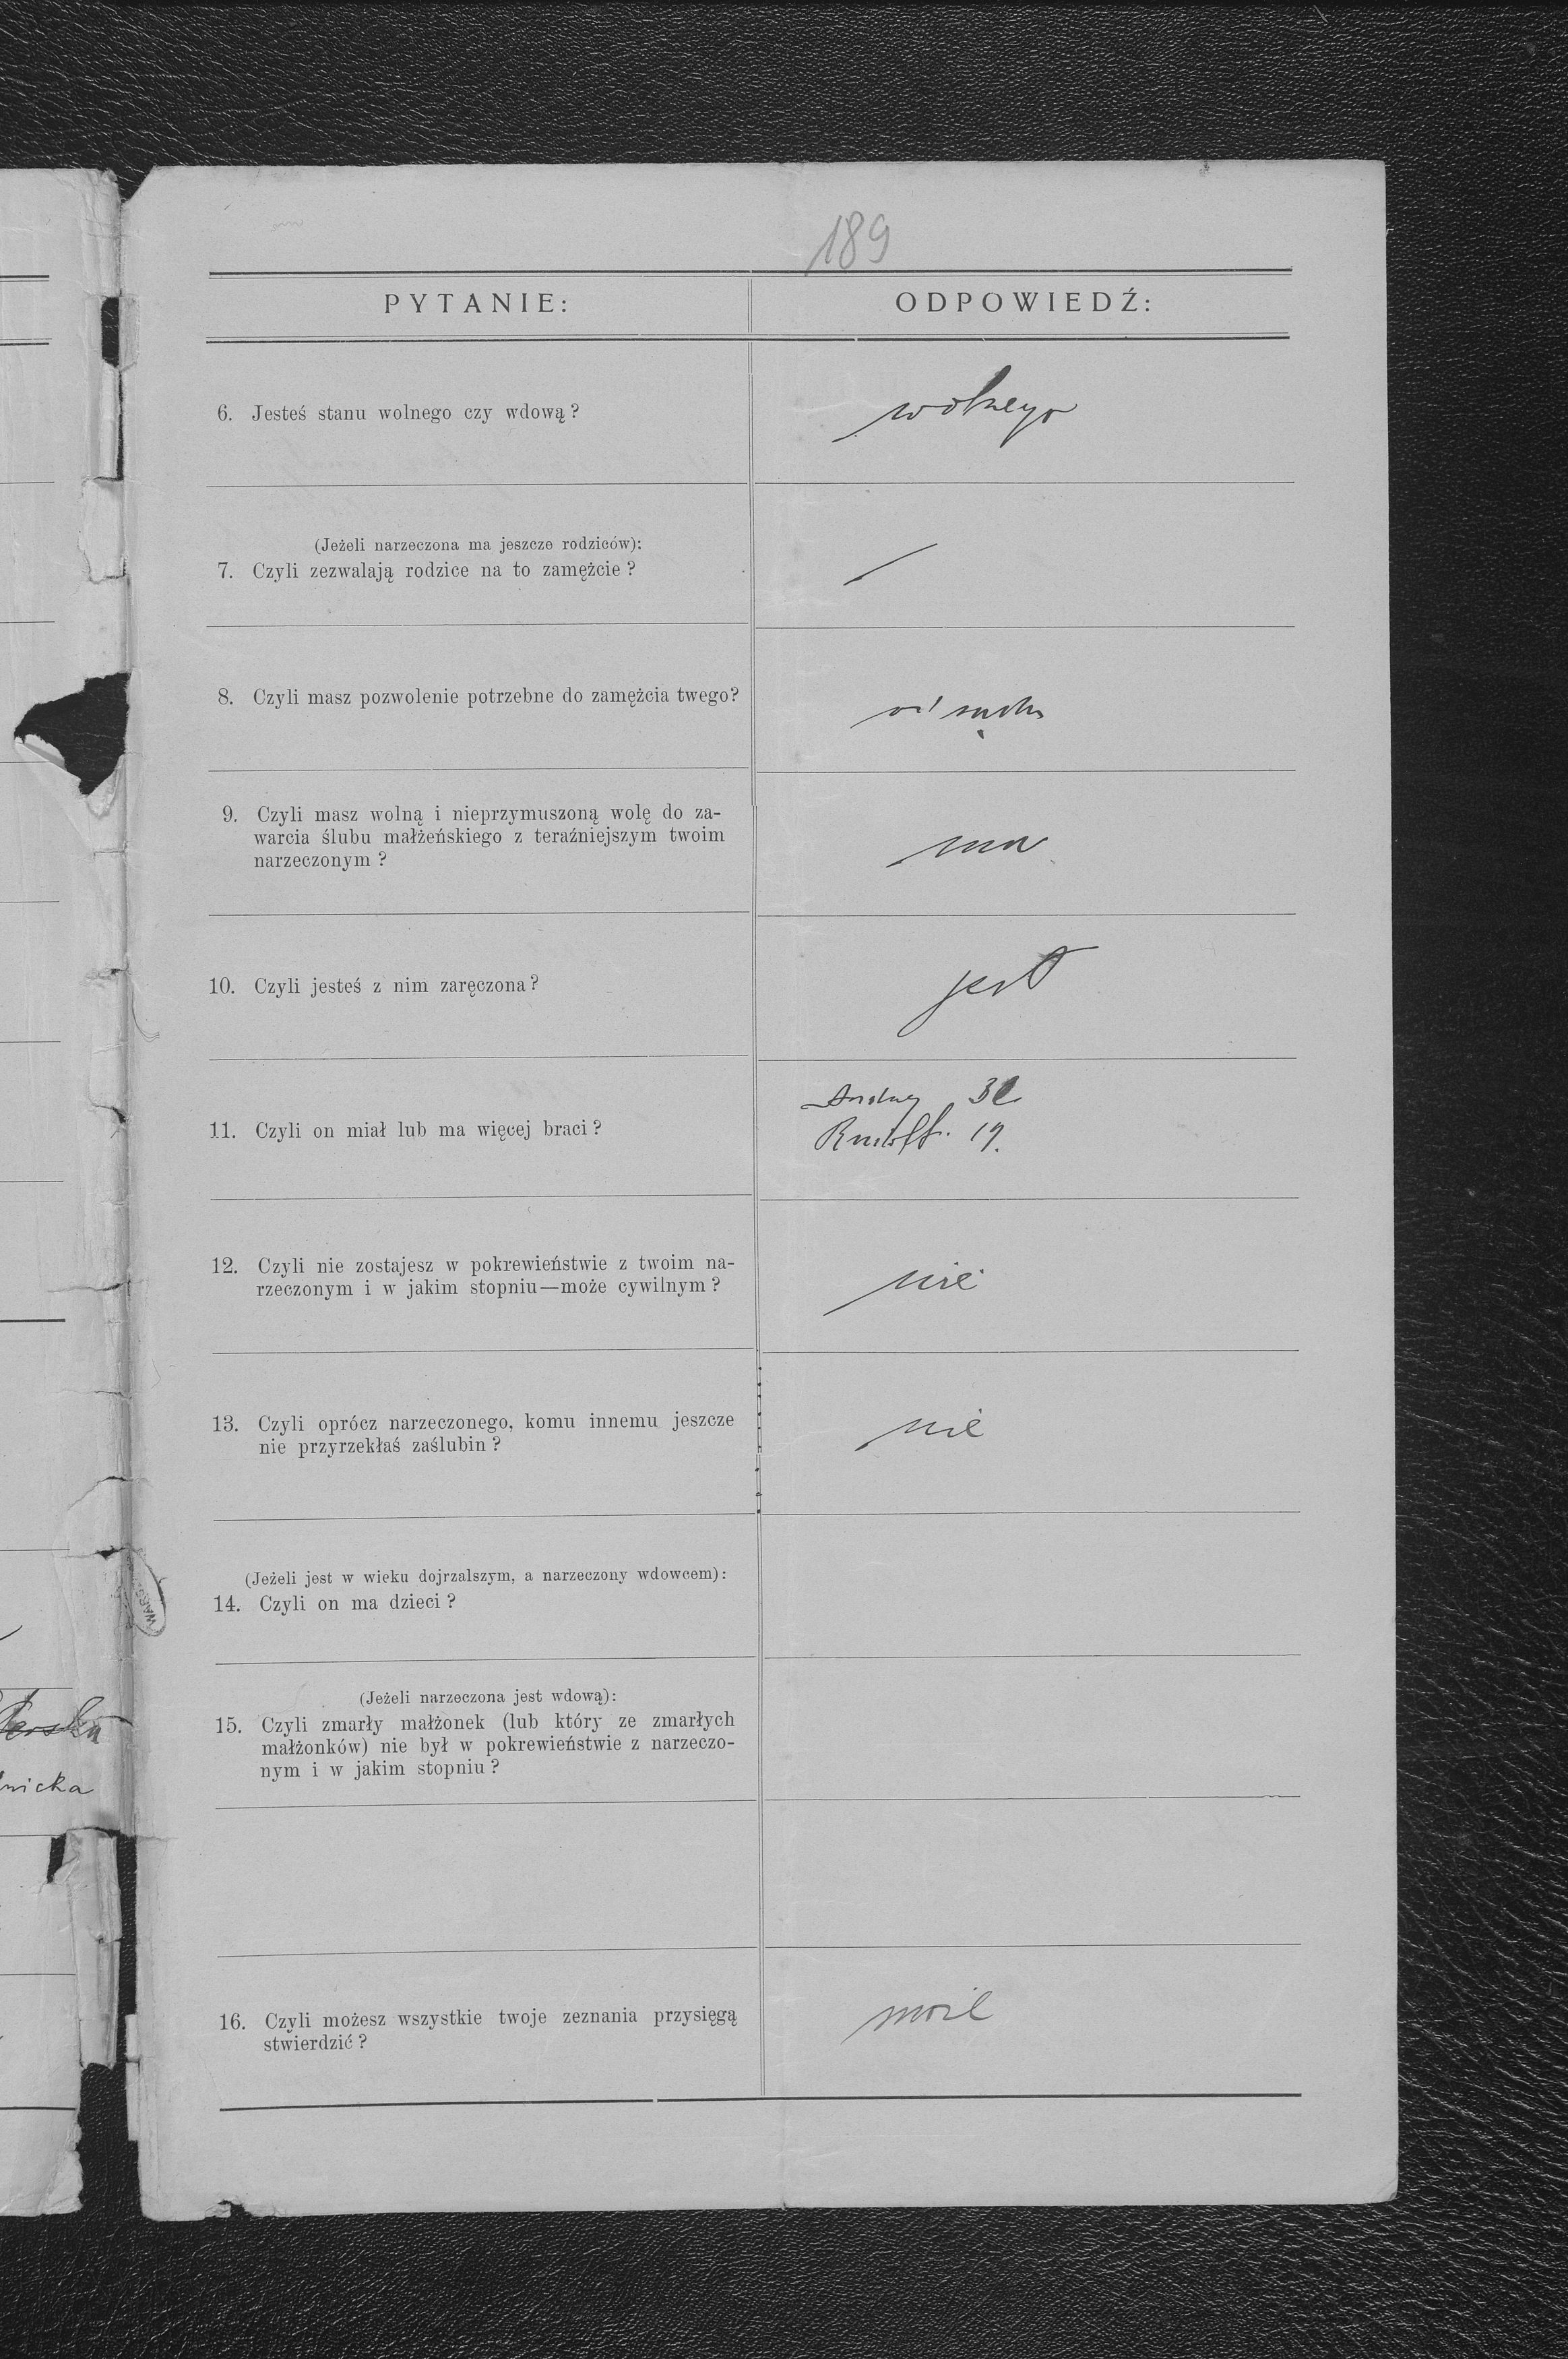 189
PYTANIE: ODPOWIEDŹ:
6. Jesteś stanu wolnego czy wdową? wolnego
(Jeżeli narzeczona ma jeszcze rodziców):
7. Czyli zezwalają rodzice na to zamężcie? —
8. Czyli masz pozwolenie potrzebne do zamężcia twego? od sądu
9. Czyli masz wolną i nieprzymuszoną wolę do za-
warcia ślubu małżeńskiego z teraźniejszym twoim
narzeczonym? ma
10. Czyli jesteś z nim zaręczona? jest
11. Czyli on miał lub ma więcej braci?
Rudolf. 19.
12. Czyli nie zostajesz w pokrewieństwie z twoim na-
rzeczonym i w jakim stopniu—może cywilnym? nie
13. Czyli oprócz narzeczonego, komu innemu jeszcze
nie przyrzekłaś zaślubin? nie
(Jeżeli jest w wieku dojrzalszym, a narzeczony wdowcem):
14. Czyli on ma dzieci?
(Jeżeli narzeczona jest wdową):
15. Czyli zmarły małżonek (lub który ze zmarłych
małżonków) nie był w pokrewieństwie z narzeczo-
nym i w jakim stopniu?
16. Czyli możesz wszystkie twoje zeznania przysięgą
stwierdzić? może
nicka